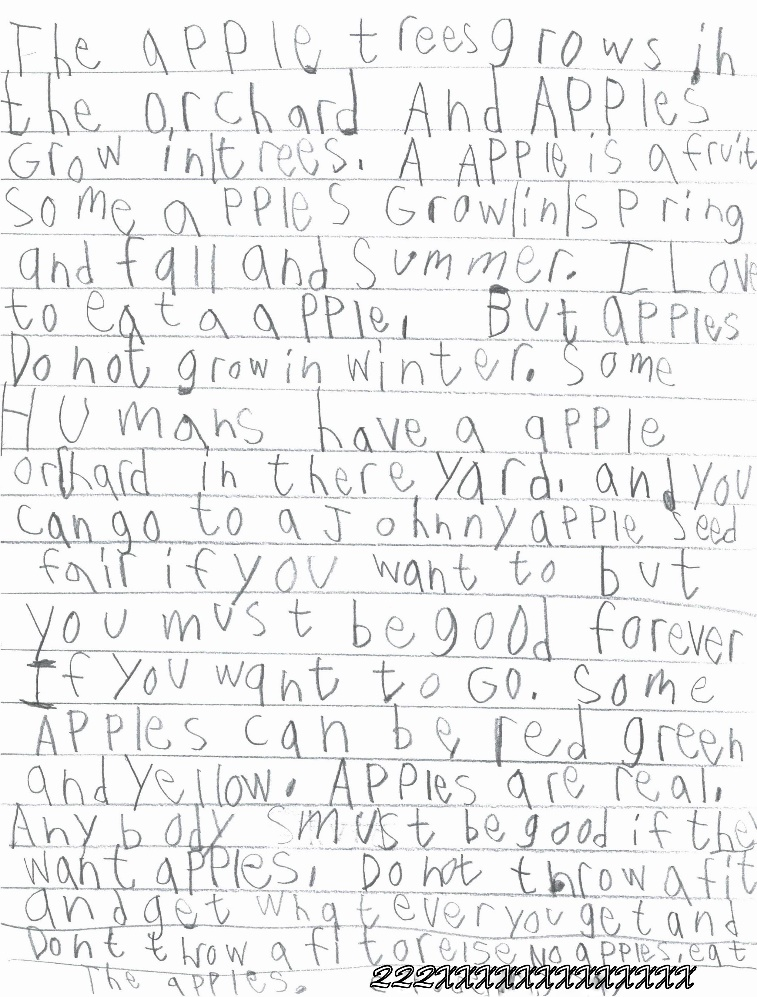 The apple trees grows in
the orchard And APPles
Grow in trees. A APPle is a fruit
Some apples Grow in spring
and fall and Summer. I Love
to eat a apple. But apples
Do not grow in winter. Some
HUmans have a apple
orchard in there yard. and you
can go to a Johnny apple seed
fair if you want to but
you must be good forever
If you want to GO. Some
APPles can be red green
and yellow. APPles are real.
Any body must be good if they
want apples. Do not throw a fit
and get what ever you get and
Dont throw a fit or else No apples. eat
The apples.
222XXXXXXXXXXXXXX